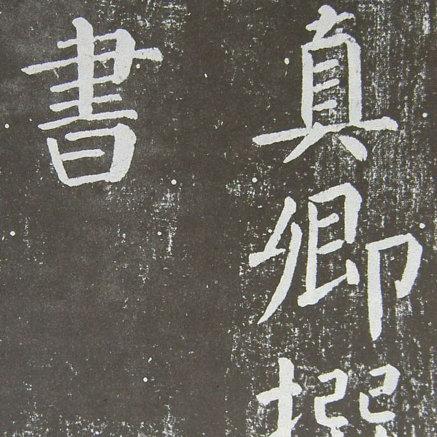 真卿撰
書